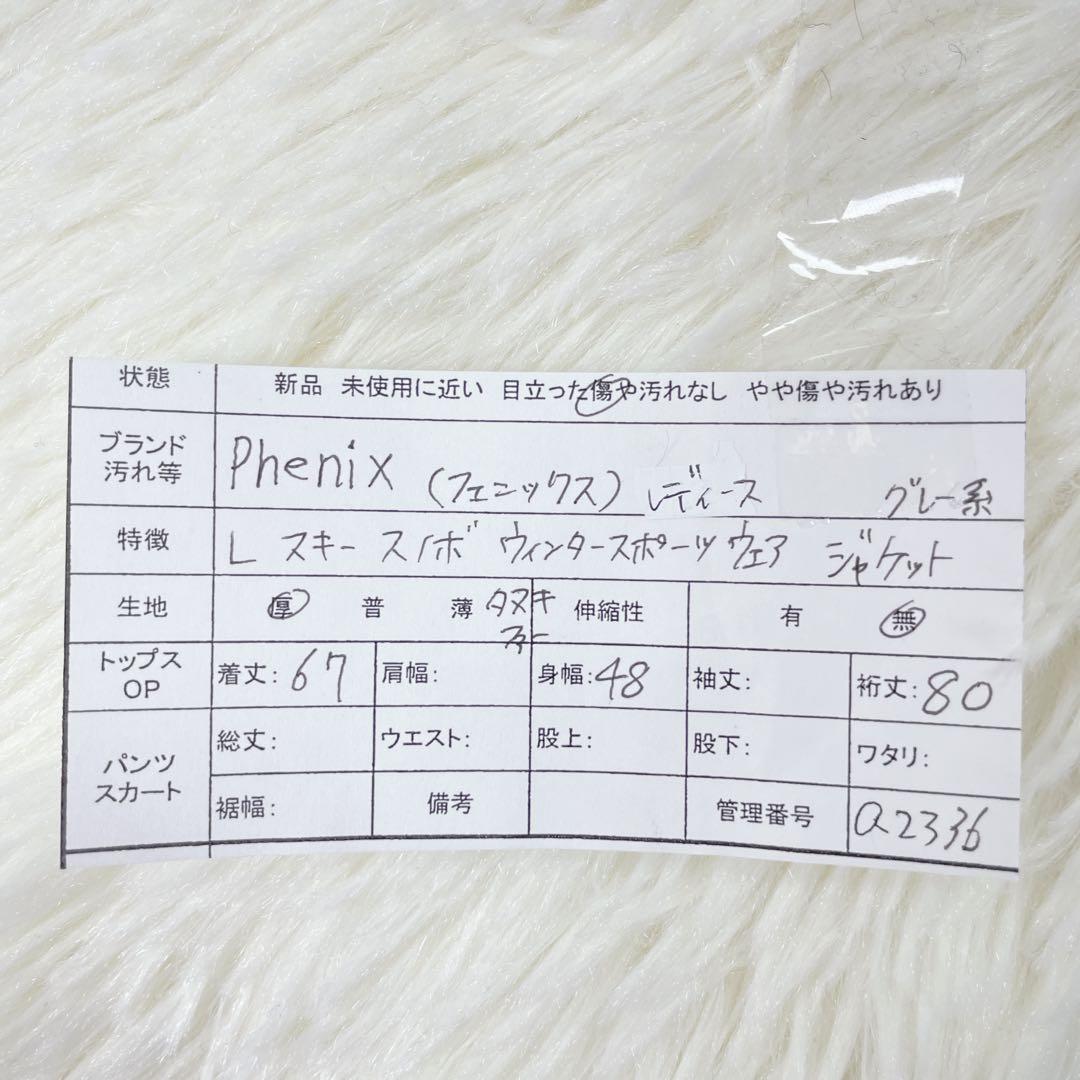 状態 新品 未使用に近い 目立った傷や汚れなし やや傷や汚れあり
ブランド
汚れ等 Phenix (フェニックス) レディース グレー系
特徴 L スキー スノボ ウィンタースポーツウェア ジャケット
生地 厚 普 薄 タヌキ
ファー 伸縮性 有 無
トップス
OP 着丈: 67 肩幅: 身幅: 48 袖丈: 裄丈: 80
パンツ
スカート 総丈: ウエスト: 股上: 股下: ワタリ:
裾幅: 備考 管理番号 a2336